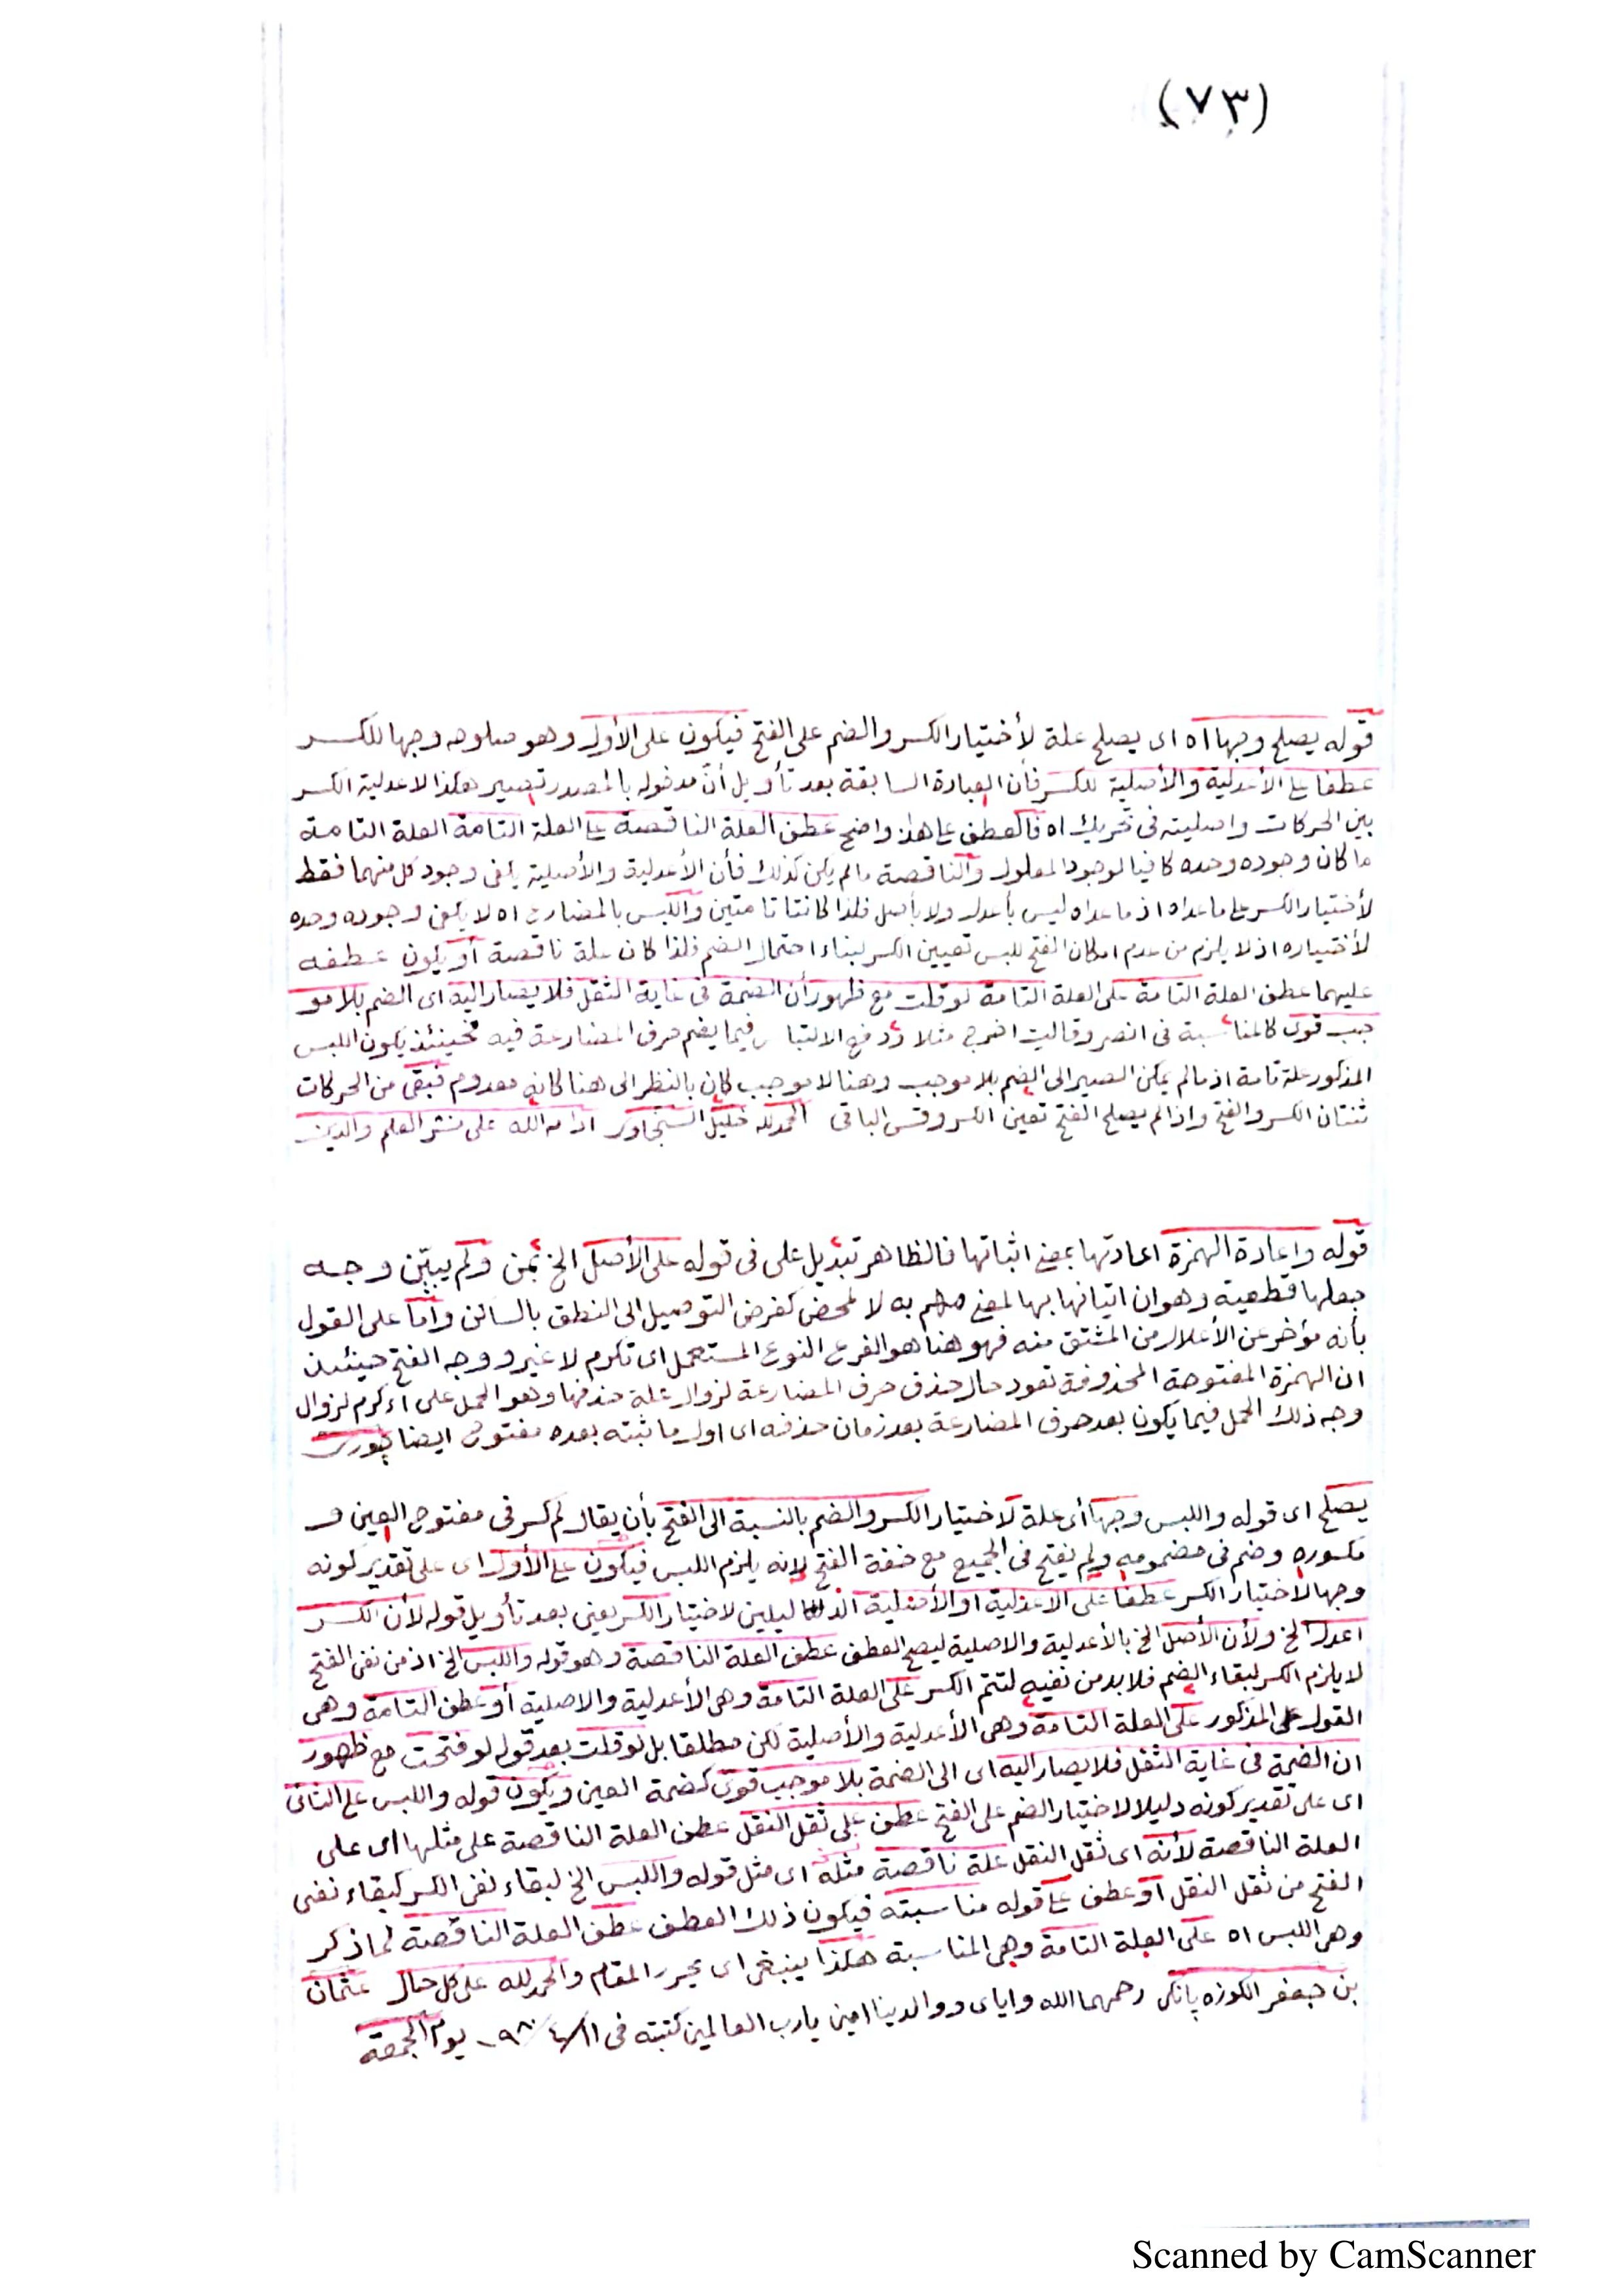 (٧٣)
قوله يصلح وجها اه اى يصلح علة لأختيار الكسر والضم على الفتح فيكون على الأول وهو صلوحه وجها للكسر
عطفا على الأعدلية والأصلية للكسر فأن العبارة السابقة بعد تأويل أنّ مدخوله بالمصدر تصير هكذا لاعدلية الكسر
بين الحركات واصليته فى تحريك اه فالعطف على هذا واضح عطف العلة الناقصة على العلة التامة العلة التامة
ما كان وجوده وحده كافيا لوجود المعلول والناقصة مالم يكن كذلك فأن الأعدلية والأصلية يكفى وجود كل منهما فقط
لأختيار الكسر على ماعداه اذ ماعداه ليس بأعدل ولا بأصل فلذا كانتا تامتين واللبس بالمضارع اه لا يكفى وجوده وحده
لأختياره اذ لا يلزم من عدم امكان الفتح للبس تعيين الكسر لبناء احتمال الضم فلذا كان علة ناقصة أو يكون عطفه
عليهما عطف العلة التامة على العلة التامة لو قلت مع ظهور أن الضمة فى غاية الثقل فلا يصار اليه اى الضم بلا مو
جب قوى كالمناسبة فى انصر وقالت اخرج مثلا ودفع الالتباس فيما يضم حرف المضارعة فيه فحينئذ يكون اللبس
المذكور علة تامة اذ مالم يمكن المصير الى الضم بلا موجب وهنا لا موجب كان بالنظر الى هنا كانه معدوم فبقى من الحركات
ثنتان الكسر والفتح واذا لم يصلح الفتح تعين الكسر وقس الباقى الحمد لله خليل ادامه الله على نشر العلم والدين
قوله واعادة الهمزة اعادتها بمعنى اثباتها فالظاهر تبديل على فى قوله على الأصل الخ بمن ولم يبيّن وجه
جعلها قطعية وهو ان اتيانها بها لمعنى به لا لمحض كغرض التوصيل الى النطق بالساكن وأمّا على القول
بأنه مؤخر عن الأعلال من المشتق منه فهو هنا هو الفرع النوع المستعمل اى تكرم لا غير ووجه الفتح حينئذ
ان الهمزة المفتوحة المحذوفة تعود حال حذف حرف المضارعة لزوال علة حذفها وهو الحمل على أءكرم لزوال
وجه ذلك الحمل فيما يكون بعد حرف المضارعة بعد زمان حذفه اى اول ما ثبته بعده مفتوح ايضا
يصلح اى قوله واللبس وجها أى علة لاختيار الكسر والضم بالنسبة الى الفتح بأن يقال لم كسر فى مفتوح العين و
مكسوره وضم فى مضمومه ولم يفتح فى الجميع مع خفة الفتح لانه يلزم اللبس فيكون على الأول اى على تقدير كونه
وجها لاختيار الكسر عطفا على الاعدلية او الأصلية الدليلين لاختيار الكسر يعنى بعد تأويل قوله لأن الكسر
اعدل الخ ولأن الأصل الخ بالأعدلية والاصلية ليصح العطف عطف العلة الناقصة وهو قوله واللبس الخ اذ من نفى الفتح
لا يلزم الكسر لبقاء الضم فلا بد من نفيه لتتم الكسر على العلة التامة وهى الأعدلية والاصلية أو عطف التامة وهى
القول المذكور على العلة التامة وهى الأعدلية والأصلية لكن مطلقا بل لو قلت بعد قوله لو فتحت مع ظهور
ان الضمة فى غاية الثقل فلا يصار اليه اى الى الضمة بلا موجب قوى كضمة العين ويكون قوله واللبس على الثانى
اى على تقدير كونه دليلا لاختيار الضم على الفتح عطف على ثقل النقل عطف العلة الناقصة على مثلها اى على
العلة الناقصة لأنه اى ثقل النقل علة ناقصة مثله اى مثل قوله واللبس الخ لبقاء نفى الكسر كبقاء نفى
الفتح من ثقل النقل أو عطف على قوله مناسبته فيكون ذلك العطف عطف العلة الناقصة لما ذكر
وهى اللبس اه على العلة التامة وهى المناسبة هكذا ينبغى اى يحرر المقام والحمد لله على كل حال عثمان
بن جعفر الكوزه پانكى رحمهما الله واياى ووالدينا امين يارب العالمين كتبته فى ١١/٤/٩٨٠ يوم الجمعة
Scanned by CamScanner